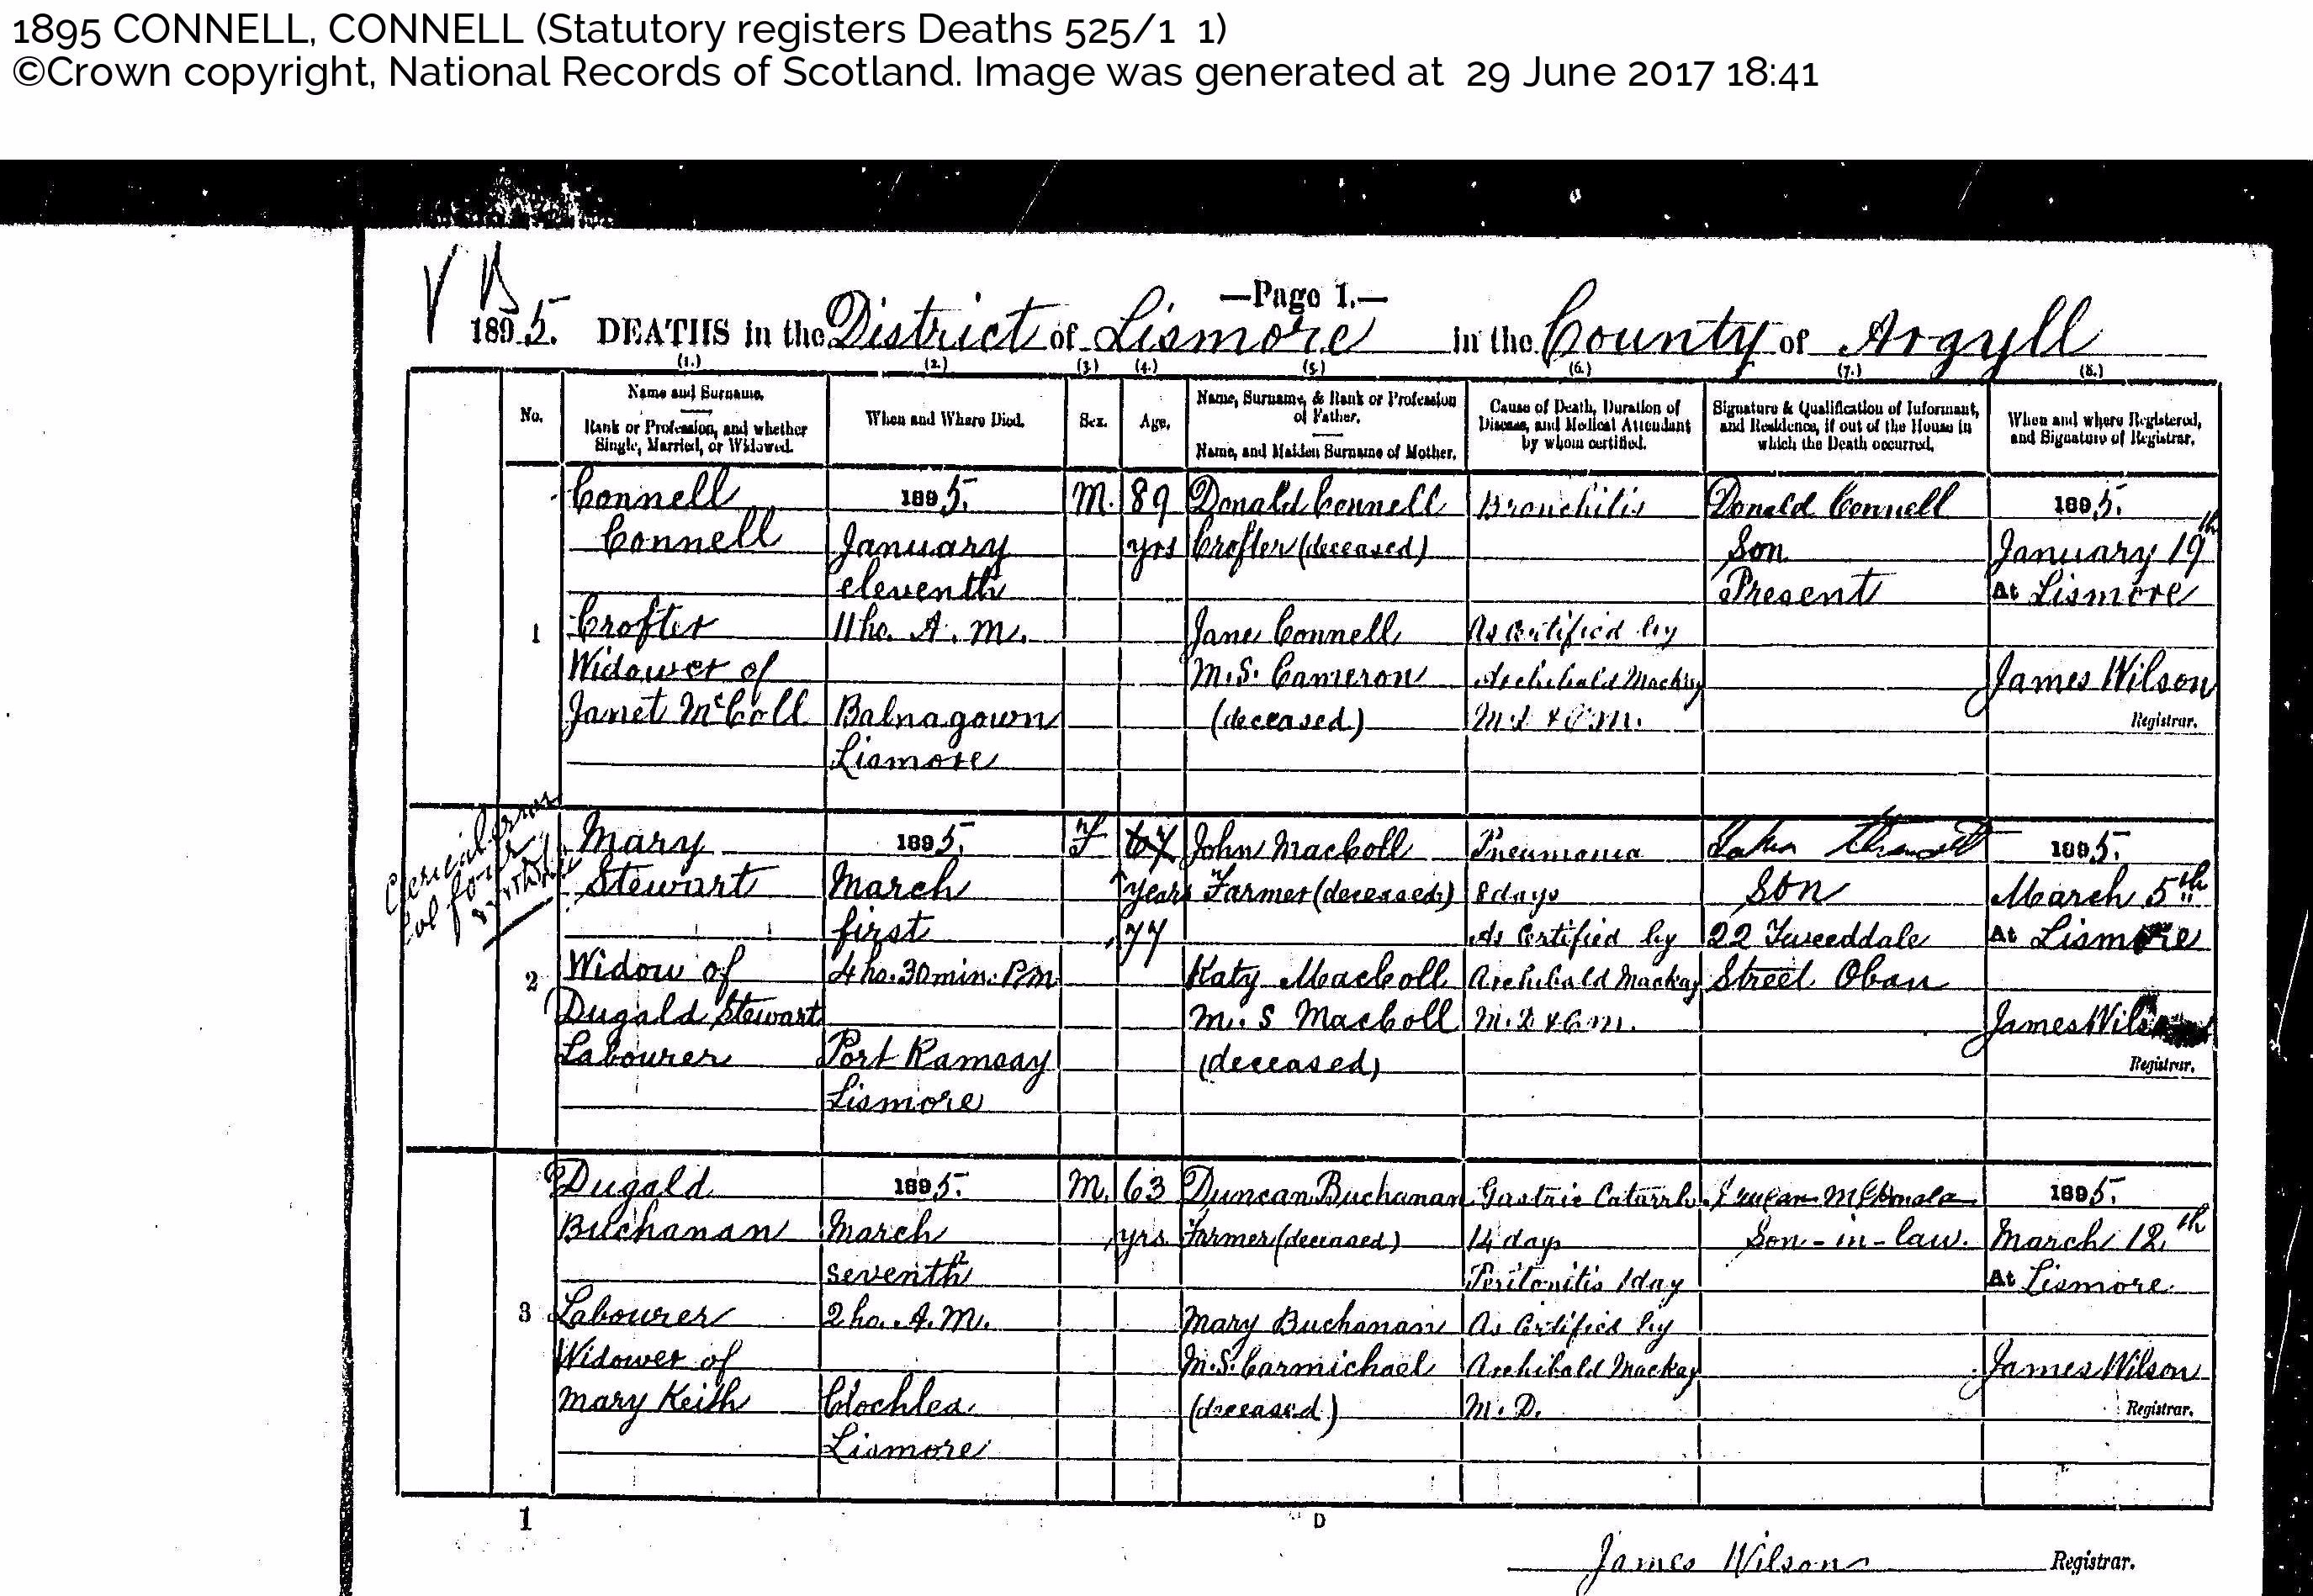 1895 CONNELL, CONNELL (Statutory registers Deaths 525/1 1)
©Crown copyright, National Records of Scotland. Image was generated at 29 June 2017 18:41
—Page 1.—
1895. DEATHS in the District of Lismore in the County of Argyll
(1.) (2.) (3.) (4.) (5.) (6.) (7.) (8.)
No.
Name and Surname.
Rank or Profession, and whether
Single, Married, or Widowed.
When and Where Died.
Sex.
Age.
Name, Surname, & Rank or Profession
of Father.
Name, and Maiden Surname of Mother.
Cause of Death, Duration of
Disease, and Medical Attendant
by whom certified.
Signature & Qualification of Informant,
and Residence, if out of the House in
which the Death occurred.
When and where Registered,
and Signature of Registrar.
1
Connell
Connell
Crofter
Widower of
Janet McColl
1895.
January
eleventh
11 ho. A. M.
Balnagown
Lismore
M.
89
yrs
Donald Connell
Crofter (deceased)
Jane Connell
M.S. Cameron
(deceased)
Bronchitis
As Certified by
Archibald Mackay
M.D & C.M.
Donald Connell
Son
Present
1895.
January 19th
At Lismore
James Wilson
Registrar.
Clerical error
Col four
2
Mary
Stewart
Widow of
Dugald Stewart
Labourer
1895.
March
first
4 ho. 30 min. P.m
Port Ramsay
Lismore
F
67
years
77
John MacColl
Farmer (deceased)
Katy MacColl
M. S MacColl
(deceased)
Pneumonia
8 days
As Certified by
Archibald Mackay
M.D & C.m.
Son
22 Tweeddale
Street Oban
1895.
March 5th
At Lismore
James Wilson
Registrar.
3
Dugald
Buchanan
Labourer
Widower of
Mary Keith
1895.
March
seventh
2 ho. A. M.
Clochlea
Lismore
M.
63
yrs.
Duncan Buchanan
Farmer (deceased)
Mary Buchanan
M.S. Carmichael
(deceased)
Gastric Catarrh
14 days
Peritonitis 1 day
As Certified by
Archibald Mackay
M. D.
Son-in-law.
1895.
March 12th
At Lismore
James Wilson
Registrar.
1
D
James Wilson Registrar.